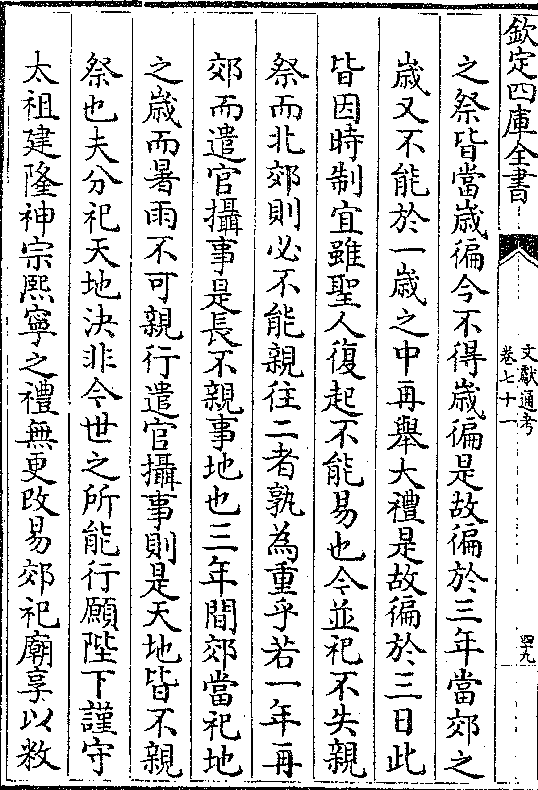 欽定四庫全書
文獻通考
卷七十一
四九
之祭皆當歳徧今不得歳徧是故徧於三年當郊之
歳又不能於一歳之中再舉大禮是故徧於三日此
皆因時制宜雖聖人復起不能易也今並祀不失親
祭而北郊則必不能親往二者孰為重乎若一年再
郊而遣官攝事是長不親事地也三年間郊當祀地
之歳而暑雨不可親行遣官攝事則是天地皆不親
祭也夫分祀天地決非今世之所能行願陛下謹守
太祖建隆神宗熙寧之禮無更改易郊祀廟享以敉